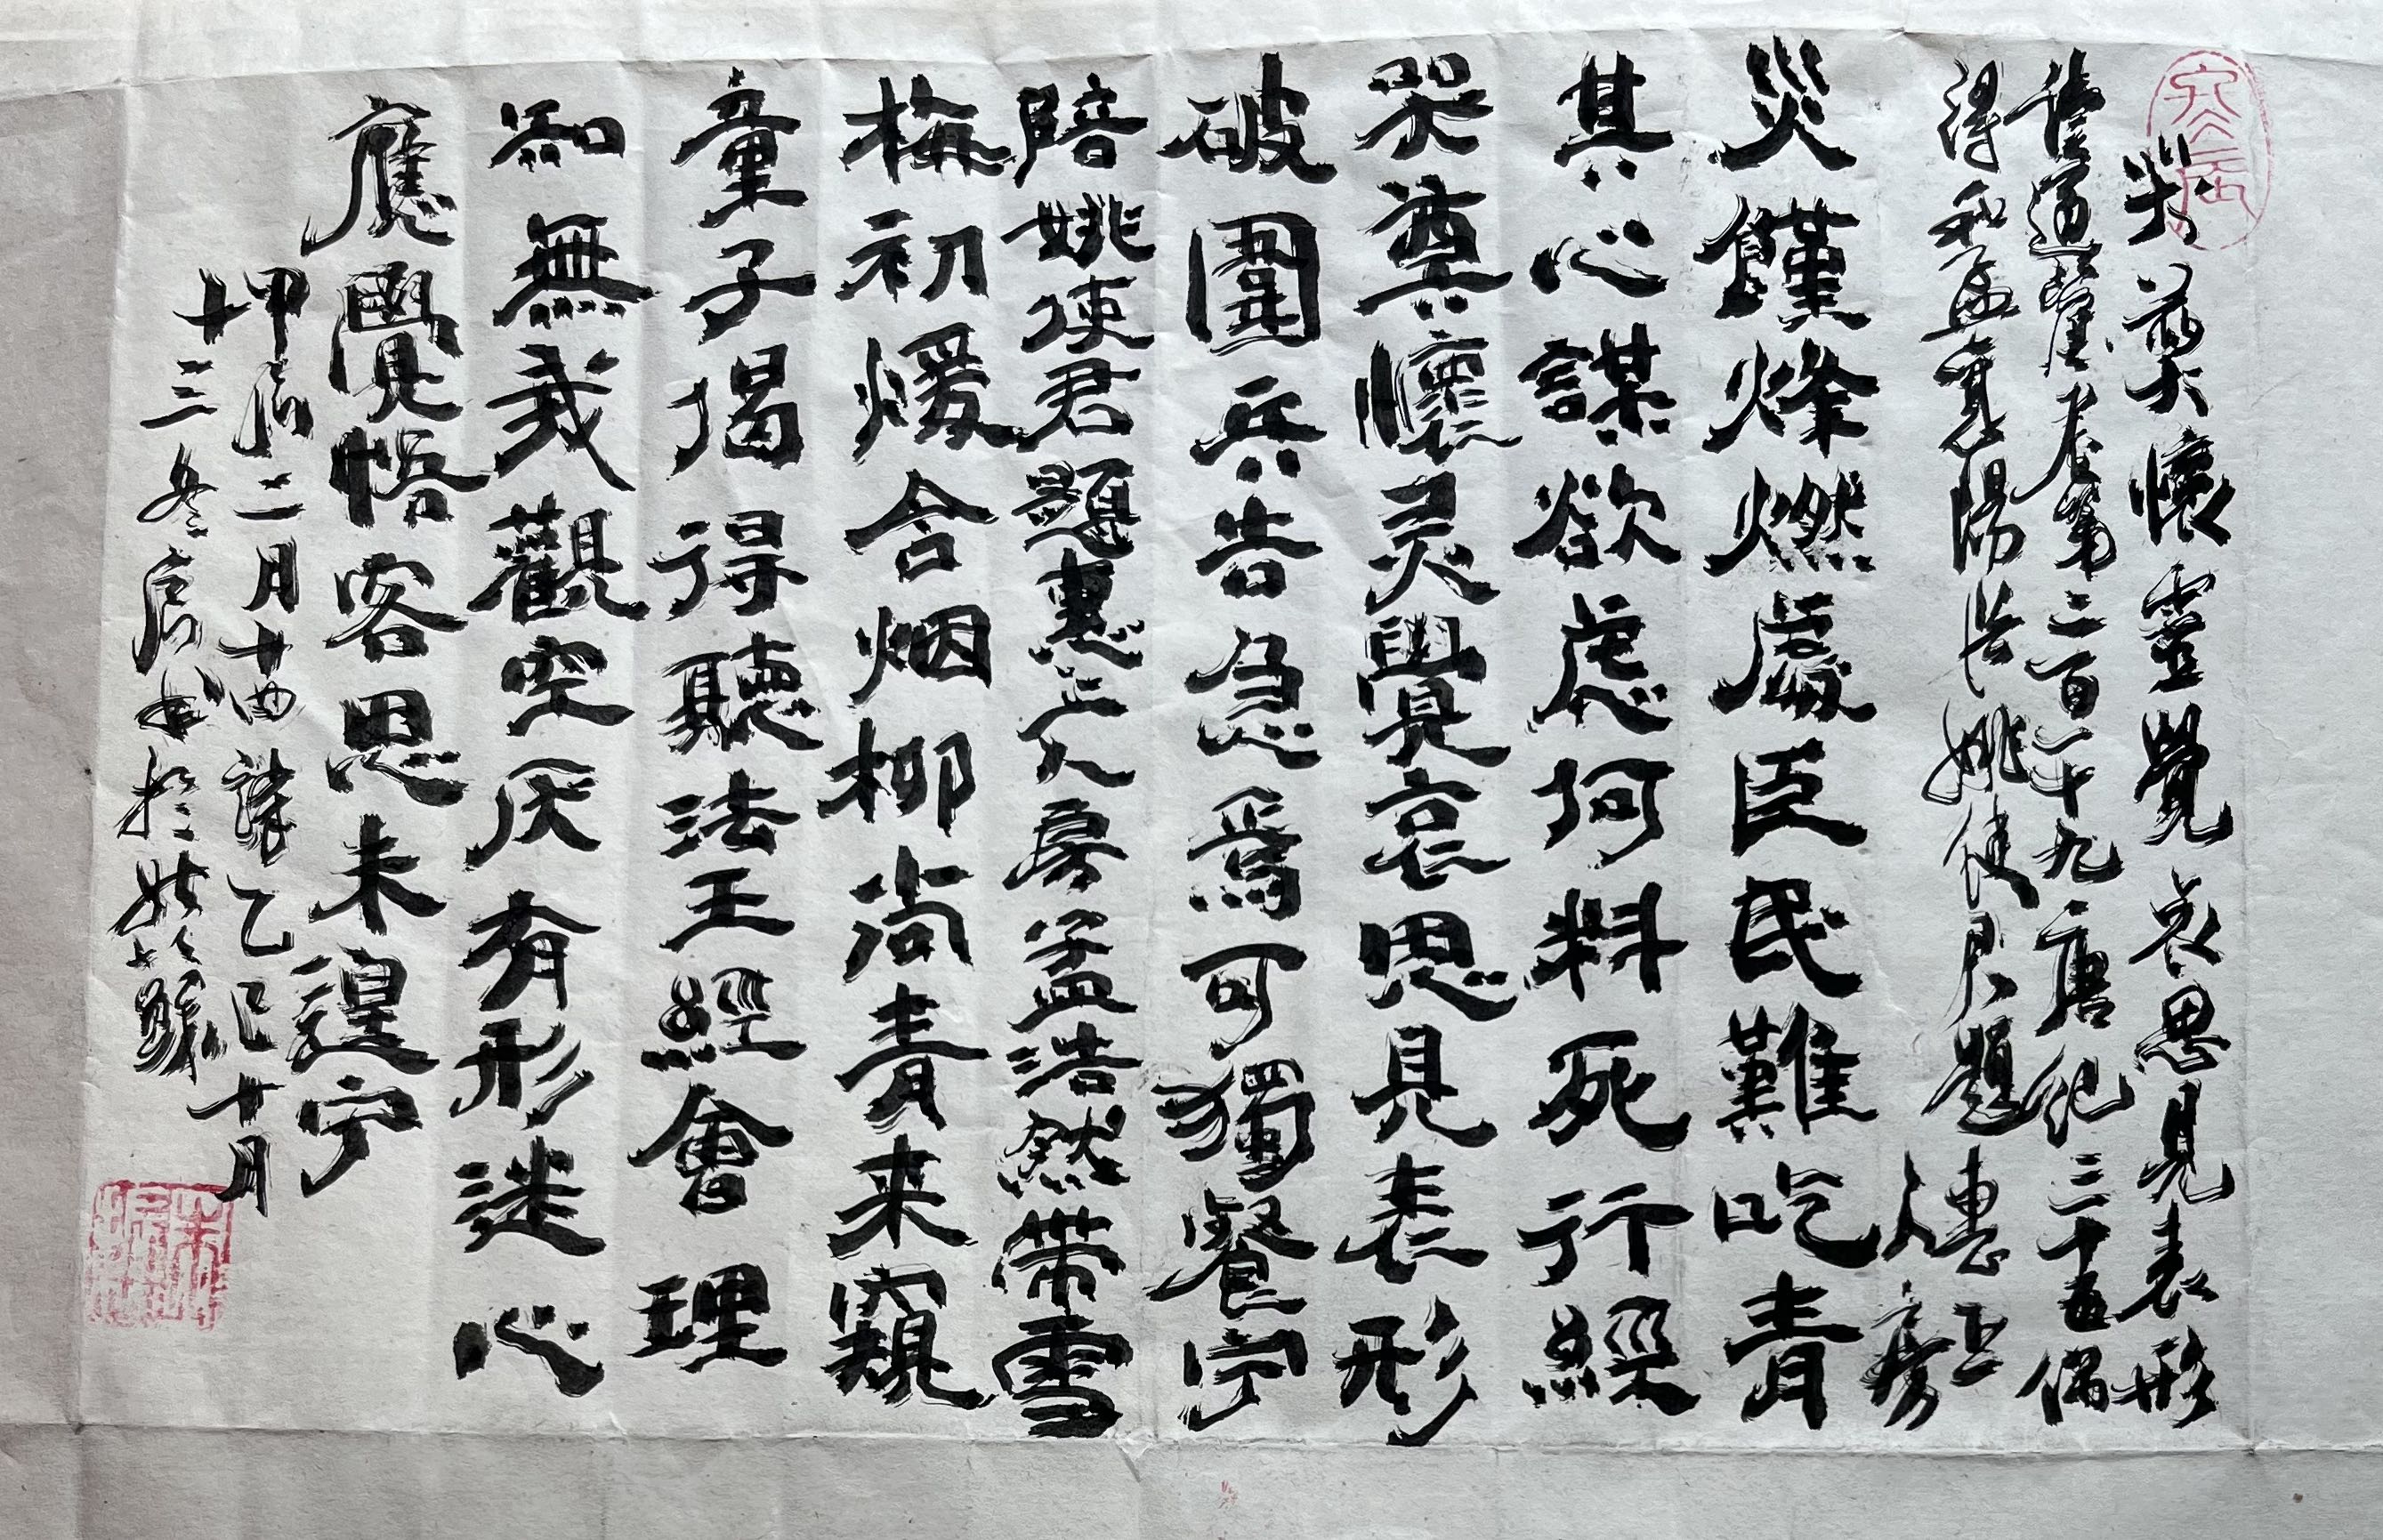 哭奠懷靈覺哀思見表形
讀通鑒卷第二百一十九唐紀三十五偶
得和孟襄陽浩然姚使君題惠上
人房
災饉烽燃處臣民難吃青
其心謀欲慮何料死行經
哭奠懷灵覺哀思見表形
破圍兵告急爲可獨餐宁
陪姚使君題惠上人房孟浩然帶雪
梅初煖含烟柳尚青来窺
童子偈得聽法王經會理
知無我觀空厌有形迷心
應覺悟客思未遑宁
甲辰二月廿四詠乙巳十月
十三冬房书於